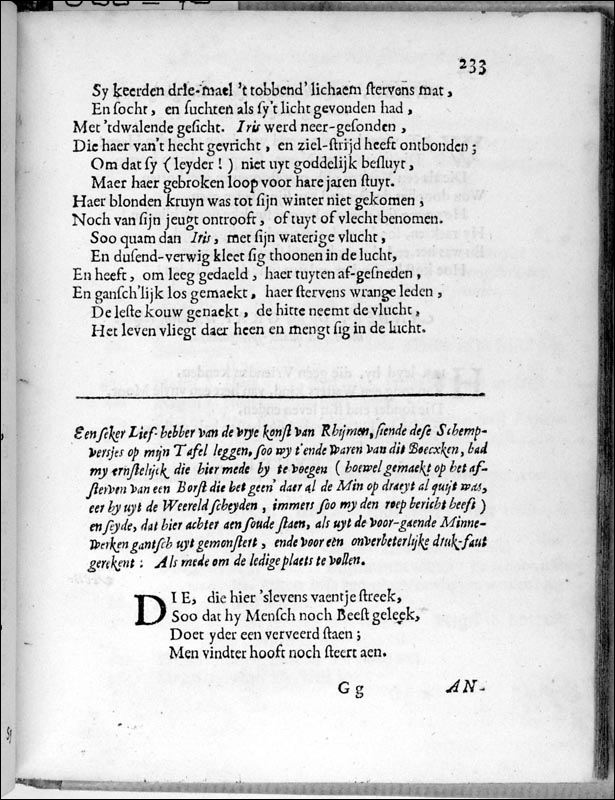 233
Sy keerden drie-mael 't tobbend' lichaem stervens mat,
En socht, en suchten als sy't licht gevonden had,
Met 'tdwalende gesicht. Iris werd neer-gesonden,
Die haer van't hecht gevricht, en ziel-strijd heeft ontbonden;
Om dat sy (leyder!) niet uyt goddelijk besluyt,
Maer haer gebroken loop voor hare jaren stuyt.
Haer blonden kruyn was tot sijn winter niet gekomen;
Noch van sijn jeugt ontrooft, of tuyt of vlecht benomen.
Soo quam dan Iris, met sijn waterige vlucht,
En dusend-verwig kleet sig thoonen in de lucht,
En heeft, om leeg gedaeld, haer tuyten af-gesneden,
En gansch'lijk los gemaekt, haer stervens wrange leden,
De leste kouw genaekt, de hitte neemt de vlucht,
Het leven vliegt daer heen en mengt sig in de lucht.
Een seker Lief-hebber van de vrye konst van Rhijmen, siende dese Schemp-
versjes op mijn Tafel leggen, soo wy t'ende waren van dit Boecxken, bad
my ernstelijck die hier mede by te voegen (hoewel gemaekt op het af-
sterven van een Borst die het geen' daer al de Min op draeyt al quijt was,
eer hy uyt de Weereld scheyden, immers soo my den roep bericht heeft)
en seyde, dat hier achter aen soude staen, als uyt de voor-gaende Minne-
Werken gantsch uyt gemonstert, ende voor een onverbeterlijke druk-faut
gerekent: Als mede om de ledige plaets te vollen.
DIE, die hier 'slevens vaentje streek,
Soo dat hy Mensch noch Beest geleek,
Doet yder een verveerd staen;
Men vindter hooft noch steert aen.
Gg AN-